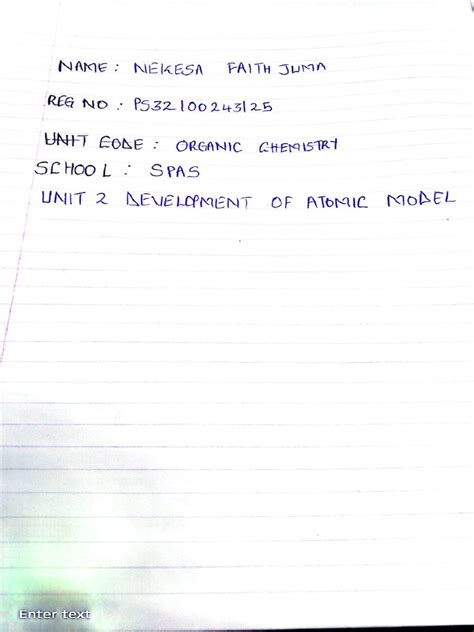 NAME: NEKESA FAITH JUMA
REG NO: PS32/00243/25
UNIT CODE: ORGANIC CHEMISTRY
SCHOOL: SPAS
UNIT 2 DEVELOPMENT OF ATOMIC MODEL
Enter text